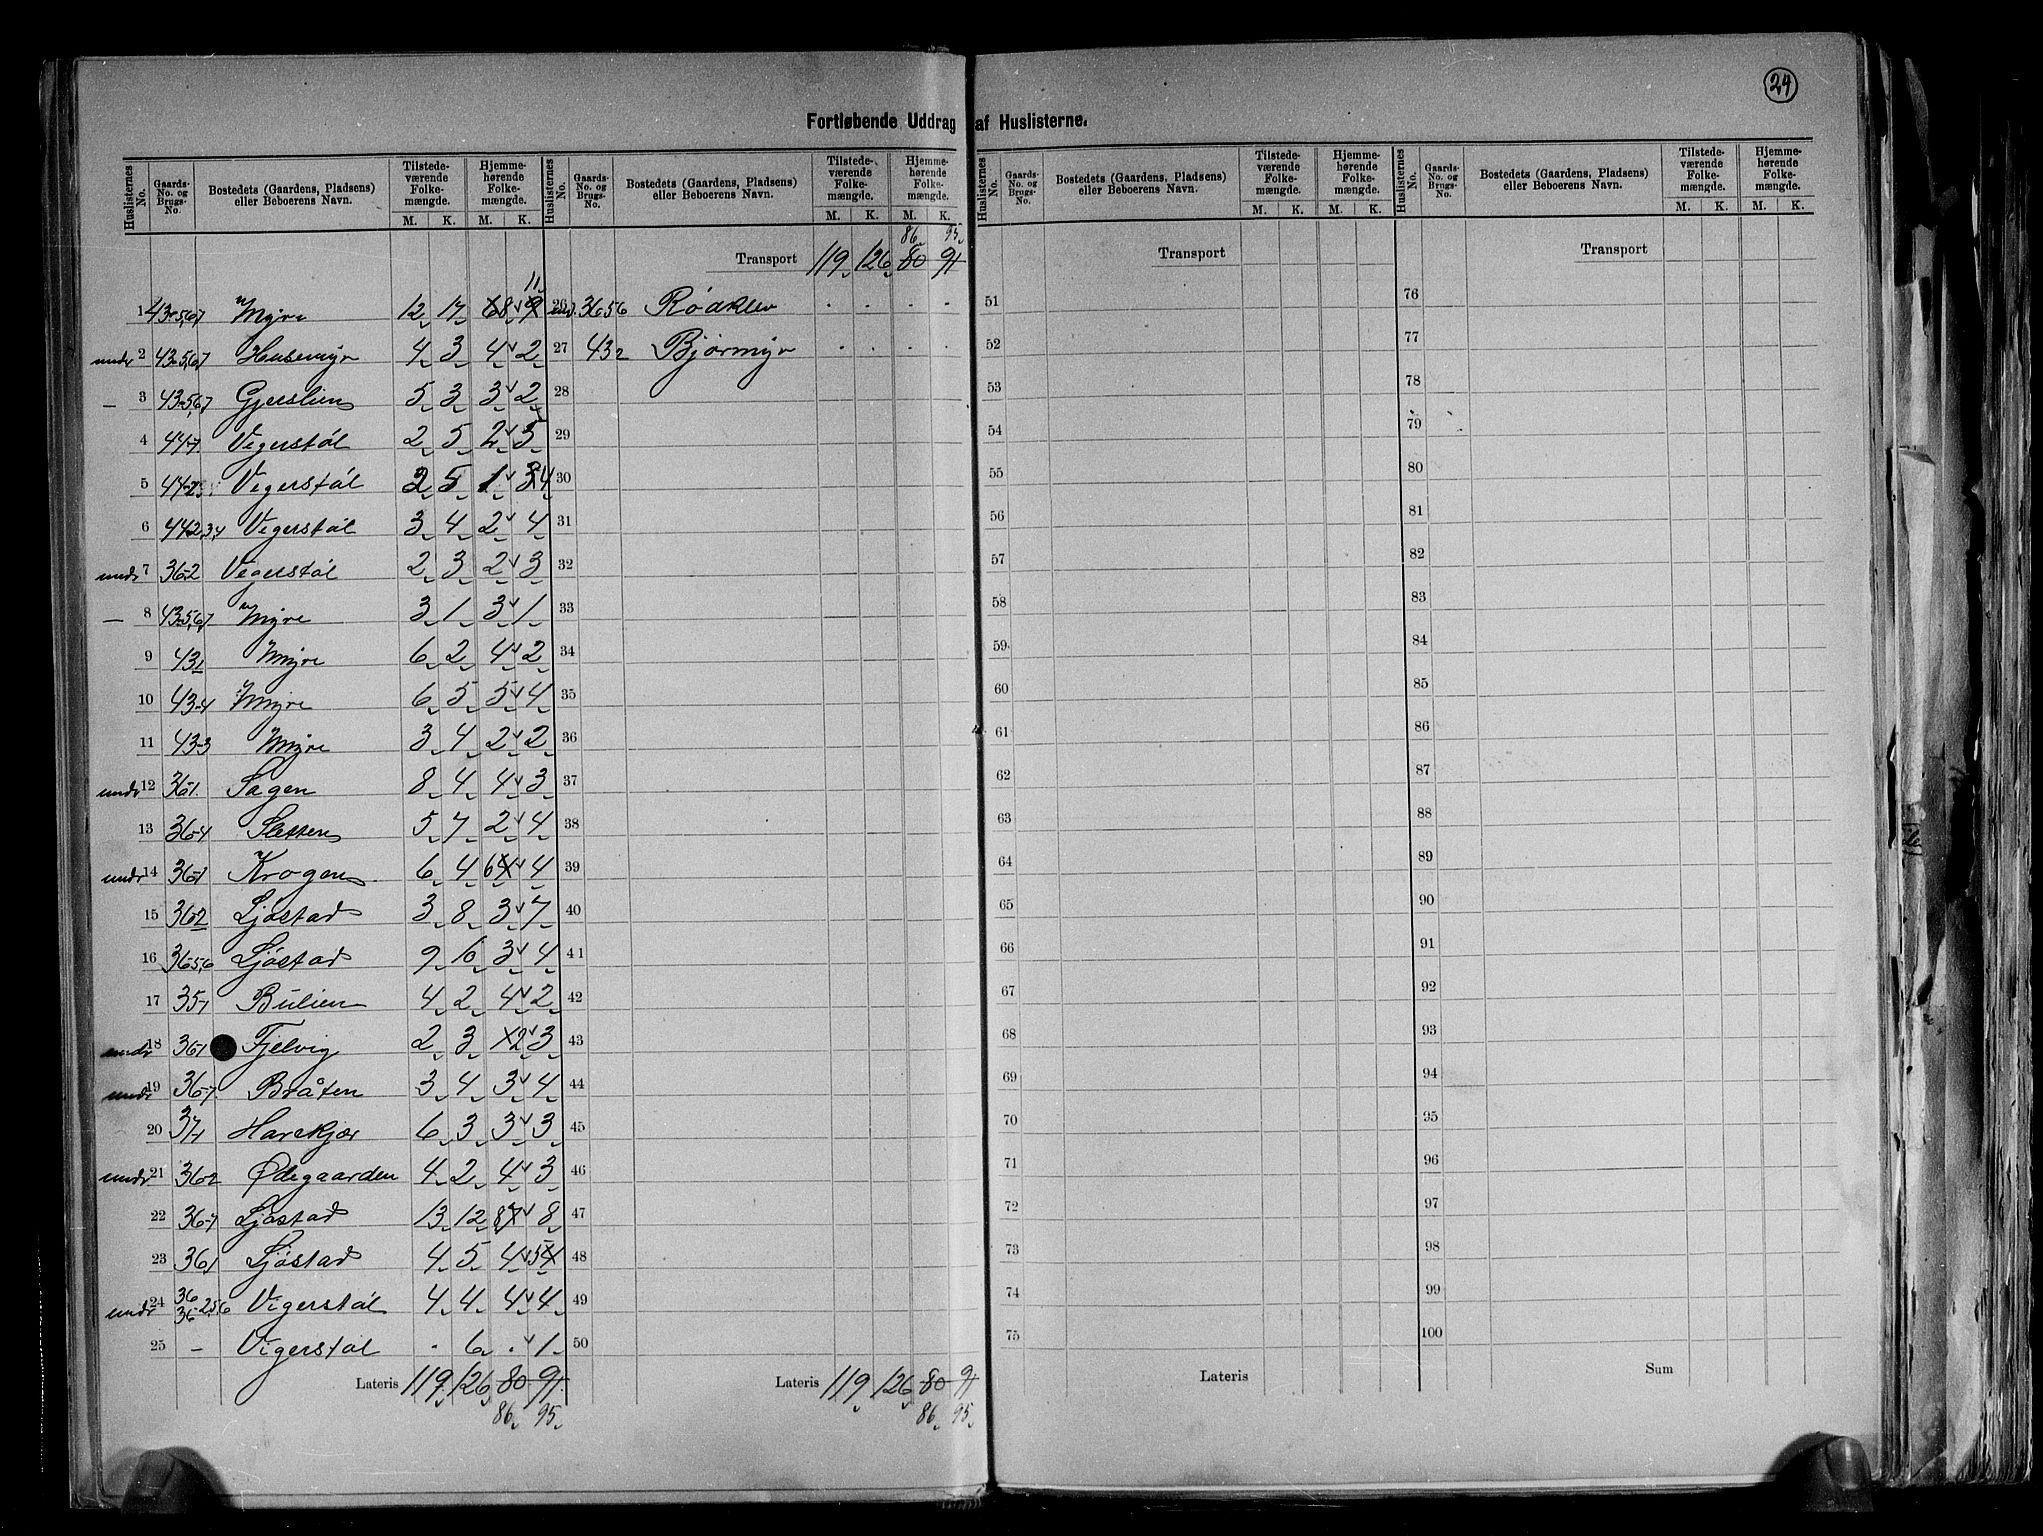 24
Fortløbende Uddrag af Huslisterne.
Huslisternes No. Gaards-No. og Brugs-No. Bostedets (Gaardens, Pladsens) eller Beboerens Navn. Tilstedeværende Folkemængde. M. K. Hjemmehørende Folkemængde. M. K.
1 43-5,6,7 Myre 12 17 8 11
undr 2 43-5,6,7 Husemyr 4 3 4 2
— 3 43-5,6,7 Gjerslien 5 3 3 2
4 44-7 Vegerstøl 2 5 2 5
5 44-2 Vigerstøl 2 5 1 4
6 44-2,3,4 Vegerstøl 3 4 2 4
undr 7 36-2 Vegerstøl 2 3 2 3
— 8 43-5,6,7 Myre 3 1 3 1
9 43-1 Myre 6 2 4 2
10 43-4 Myre 6 5 5 4
11 43-3 Myre 3 4 2 2
undr 12 36-1 Sagen 8 4 4 3
13 36-4 Sletten 5 7 2 4
undr 14 36-1 Krogen 6 4 6 4 4
15 36-2 Ljøstad 3 8 3 7
16 36-5,6 Ljøstad 9 16 3 4
17 35-1 Bulien 4 2 4 2
undr 18 36-1 Fjelvig 2 3 2 3
undr 19 36-7 Bråten 3 4 3 4
20 37-1 Harekjær 6 3 3 3
undr 21 36-2 Ødegaarden 4 2 4 3
22 36-7 Ljøstad 13 12 8 7 8
23 36-1 Ljøstad 4 5 4 5 4
undr 24 36 36-2,5,6 Vigerstøl 4 4 4 4
25 — Vigerstøl . 6 . 1
Lateris 119 126 80 91
86 95
Huslisternes No. Gaards-No. og Brugs-No. Bostedets (Gaardens, Pladsens) eller Beboerens Navn. Tilstedeværende Folkemængde. M. K. Hjemmehørende Folkemængde. M. K.
86 95
Transport 119 126 80 91
26 und. 36-5,6 Røaklev . . . .
27 43-2 Bjørmyr . . . .
28
29
30
31
32
33
34
35
36
37
38
39
40
41
42
43
44
45
46
47
48
49
50
Lateris 119 126 80 91
86 95
Huslisternes No. Gaards-No. og Brugs-No. Bostedets (Gaardens, Pladsens) eller Beboerens Navn. Tilstedeværende Folkemængde. M. K. Hjemmehørende Folkemængde. M. K.
Transport
51
52
53
54
55
56
57
58
59
60
61
62
63
64
65
66
67
68
69
70
71
72
73
74
75
Lateris
Huslisternes No. Gaards-No. og Brugs-No. Bostedets (Gaardens, Pladsens) eller Beboerens Navn. Tilstedeværende Folkemængde. M. K. Hjemmehørende Folkemængde. M. K.
Transport
76
77
78
79
80
81
82
83
84
85
86
87
88
89
90
91
92
93
94
95
96
97
98
99
100
Sum